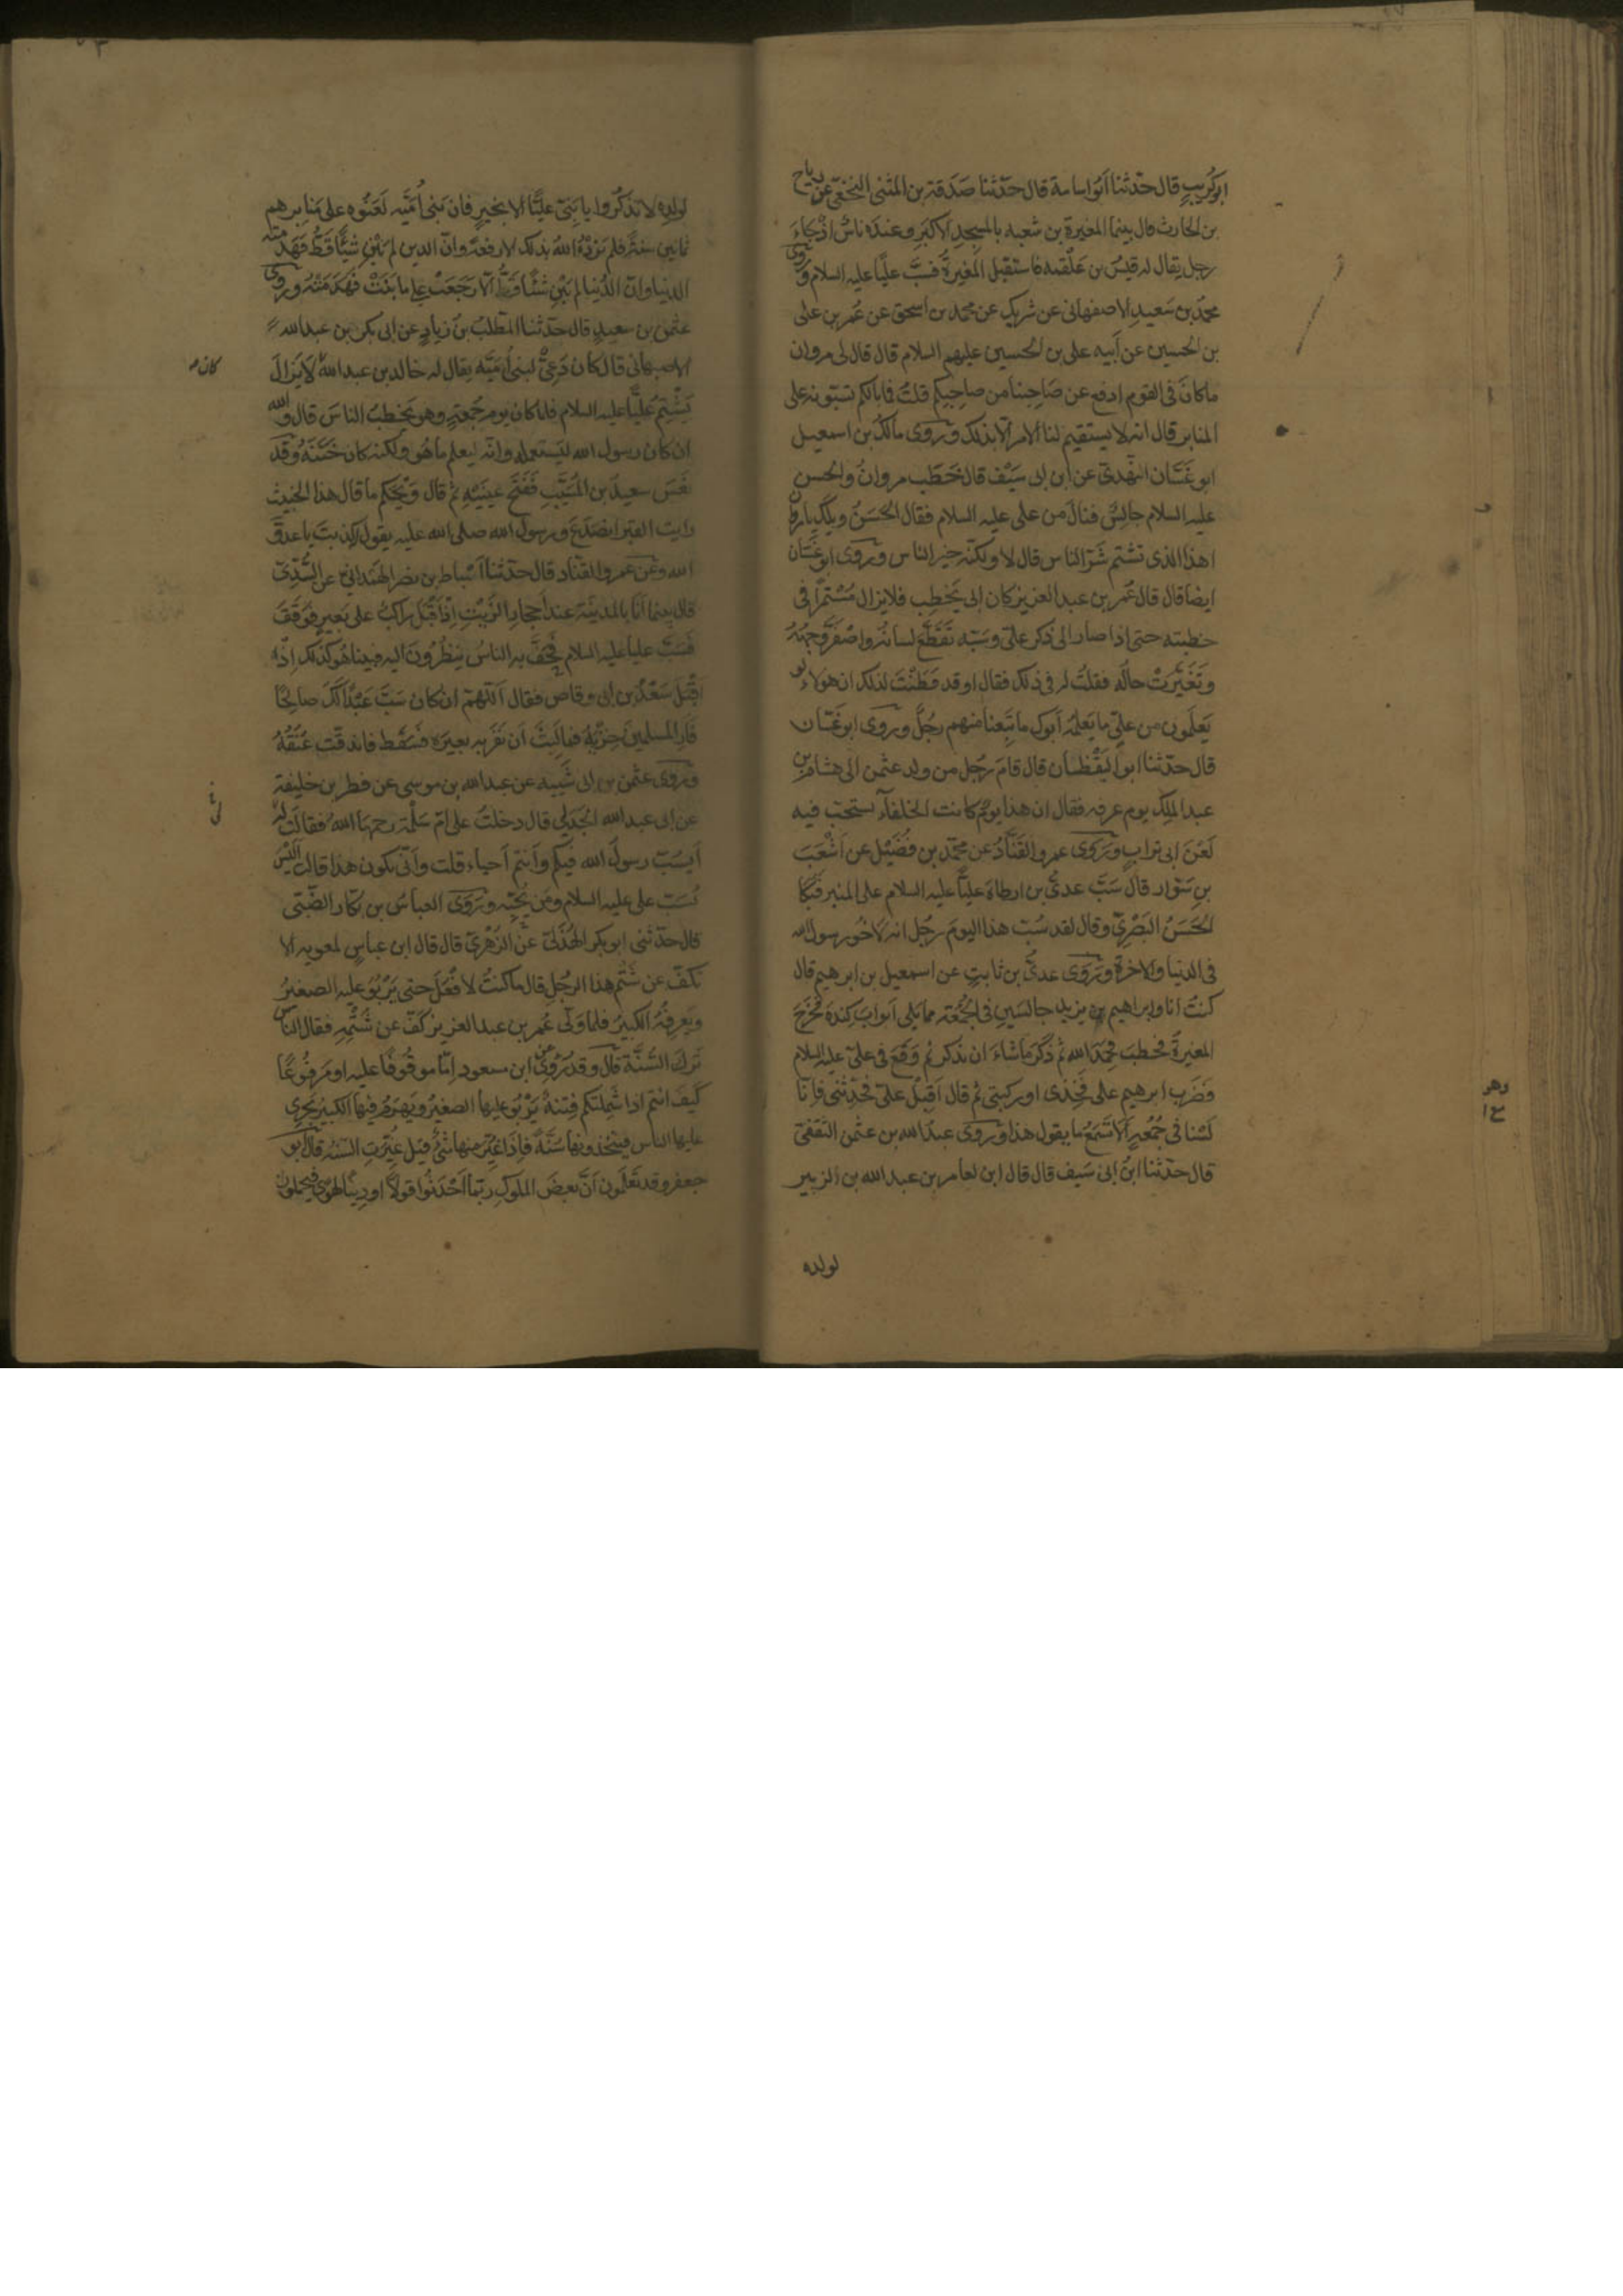 ابوكُريبٍ قال حدّثنا اَبُو اسامة قال حدّثنا صَدَقة بن المثنى النخعىّ عن رباح
بن الحارث قال بينما المغيرة بن شعبه بالمسجِدِ الاكبَرِ وعندَه ناسٌ اذْ جَاءَ
رجل يقال له قيسُ بن عَلْقمه فاستقبل المغيرةَ فسَبَّ عليًّا عليه السلام وَرَوى
محمّد بن سَعيدِ الاصفهانى عن شريك عن محمد بن اسحق عن عُمر بن على
بن الحسين عن اَبيه على بن الحسين عليهم السلام قال قال لى مروان
ماكانَ فى القوم ادفع عن صَاحِبنا من صاحِبِكم قلتُ فما بالكم تسبّونه على
المنابر قال انه لا يستقيم لنا الامر الا بذلك وَرَوى مالكُ بن اسمعيل
ابو غسّان النّهدىّ عن ابن ابى سَيْف قال خَطَب مروانُ والحسن
عليه السلام جالسٌ فنالَ من على عليه السلام فقال الحسَنُ ويلك يا مروان
اهذا الذى تشتم شَرّ الناس قال لا ولكنّه خير الناس وَرَوى ابو غسّان
ايضا قال قال عُمر بن عبد العزيز كان ابى يَخطِب فلا يزال مُسْتمرًّا فى
خطبته حتى اذا صار الى ذكر علىّ وسَبّه تَقَطَّع لسانُه واصْفَرَّ وجهُهُ
وتَغيّرتْ حاله فقلتُ له فى ذلك فقال اوقد فَطَنْتَ لذلك ان هولاءِ لو
يَعلَمون من علىّ ما يَعلَمُه اَبوك ما تَبِعنا منهم رجُلٌ ورَوى ابو غسّان
قال حدّثنا ابو اليَقْظان قال قامَ رَجُل من ولد عثمن الى هشام بن
عبد الملك يوم عرفه فقال ان هذا يومٌ كانت الخلفآء تستحب فيه
لَعْنَ ابى ترابٍ ورَوى عمرو القَنّادُ عن محمّد بن فُضَيْل عن اَشْعَث
بن سَوّار قال سَبَّ عدىُّ بن ارطاة عليًّا عليه السلام على المنبر فَبَكا
الحَسَنُ البَصْرِىّ وقال لقد سُبّ هذا اليومَ رجُل انه لاخُو رسول الله
فى الدنيا والاخرة ورَوى عدىُّ بن ثابتٍ عن اسمعيل بن ابرهيم قال
كنتُ انا وابراهيم بن يزيد جالسَينِ فى الجُمُعَة مما يَلى اَبوابَ كِنْدَة فخرَجَ
المغيرةُ فخطبَ فحمدَ الله ثم ذكَرَ ماشاءَ ان يذكر ثم وَقَعَ فى علىّ عليه السلام
فضَرَب ابرهيم على فَخِذى او ركبتى ثم قال اَقبِلْ علىّ فحَدّثنى فانّا
لَسْنا فى جُمُعةٍ اَلا تَسمَعُ ما يقول هذا وَرَوى عبدُ الله بن عثمن الثقفىّ
قال حدّثنا ابنُ ابى سَيف قال قال ابن لعامر بن عبد الله بن الزبير
لولده
وهو
لولده لا تذكُروا يا بَنىّ عليًّا الا بخيرٍ فان بَنى اُمَيّة لَعَنُوه على مَنابرهم
ثمانين سنةً فلم يَزدْهُ اللهُ بذلك الا رفعةً وانّ الدين لم يَبْنِ شيئًا قطّ فهَدَمَتْه
الدنيا وانّ الدُنيا لم تَبْنِ شَيئًا قطّ اَلا رَجَعَتْ على ما بَنَتْ فهَدَمَتْهُ ورَوى
عثمن بن سعيدٍ قال حدّثنا المطّلب بن زيادٍ عن ابى بكر بن عبد الله
الاصبهانى قال كان دَعىٌّ لبنى اُمَيّة يقال له خالد بن عبد الله لا يَزالُ
كان
يَشتم عليًّا عليه السلام فلما كان يومَ جُمعةٍ وهو يخطبُ الناسَ قال والله
ان كان رسول الله ليَستعمله وانّه ليعلم ماهُو ولكنه كان خَتَنَهُ وقد
نَعَسَ سعيدُ بن المُسَيّب ففَتَحَ عينيه ثم قال وَيْحَكم ما قال هذا الخبيث
رايت القبرَ انصَدَعَ ورسول الله صلى الله عليه يقول كذبتَ يا عدوّ
الله وعن عمرو القنّاد قال حدّثنا اَسْباط بن نصر الهَمْدانىّ عن السُّدّىّ
قال بينما اَنا بالمدينة عند اَحجار الزّيت اذ اَقبلَ راكبٌ على بَعيرٍ فوَقَفَ
فسَبَّ عليا عليه السلام فحَفَّ به الناسُ يَنظُرُونَ اليه فبينا هُو كذلك اذ
اَقبلَ سَعْدُ بن ابى وقاص فقال اَللّهمّ ان كان سَبَّ عَبْدًا لكَ صالحًا
فَاَرِ المسلمينَ خِزْيَه فما لَبِثَ اَن نَفَر به بعيره فسَقَط فاندقّت عُنُقُهُ
ورَوى عثمن بن ابى شَيبه عن عبد الله بن موسى عن فطر بن خليفة
عن ابى عبد الله الجَدَلى قال دخلتُ على امّ سَلَمة رحمها الله فقالت لى
اَيُسَبُّ رسولُ الله فيكم واَنتم اَحياء قلت واَنّى يكون هذا قالت اَليسَ
يُسَبّ على عليه السلام ومَن يُحِبّه ورَوى العباسُ بن بكّار الضّبّى
قال حدّثنى ابو بكر الهُذَلىّ عن الزهرىّ قال قال ابن عباسٍ لمعوية الا
تكفّ عن شَتم هذا الرجُلِ قال ما كنتُ لاَفعَلَ حتى يَرْبُوَ عليه الصغيرُ
ويَهرَمَ فيه الكبيرُ فلما وَلّى عُمر بن عبد العزيز كَفّ عن شَتْمِه فقال الناسُ
تَرَكَ السُّنّةَ قال وقد رُوِىَ عن ابن مسعود اِمّا موقُوفًا عليه او مَرفُوعًا
كَيفَ انتم اذا شَمِلَتكم فِتنةٌ يَرْبُو عليها الصغيرُ ويَهرَمُ فيها الكبيرُ يَجرِى
عليها الناس فيتّخذونها سُنّةً فاِذا غُيّرَ منها شىٌ قيل غُيّرَتِ السّنّة قال ابو
جعفر وقد تَعلَمون اَنّ بعضَ الملوكِ ربّما اَحْدَثُوا قولًا او دِينًا لهَوًى فيَحملون